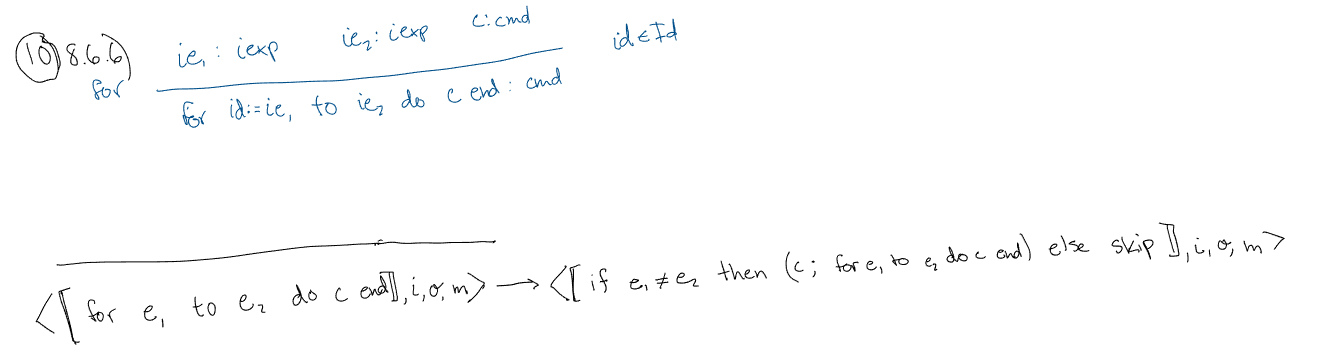 10) 8.6.6) ie₁ : iexp ie₂ : iexp c : cmd id ∈ Id
for
for id := ie₁ to ie₂ do c end : cmd
<⟦ for e₁ to e₂ do c end⟧, i, o, m> → <⟦ if e₁ ≠ e₂ then (c ; for e₁ to e₂ do c end) else skip ⟧, i, o, m>